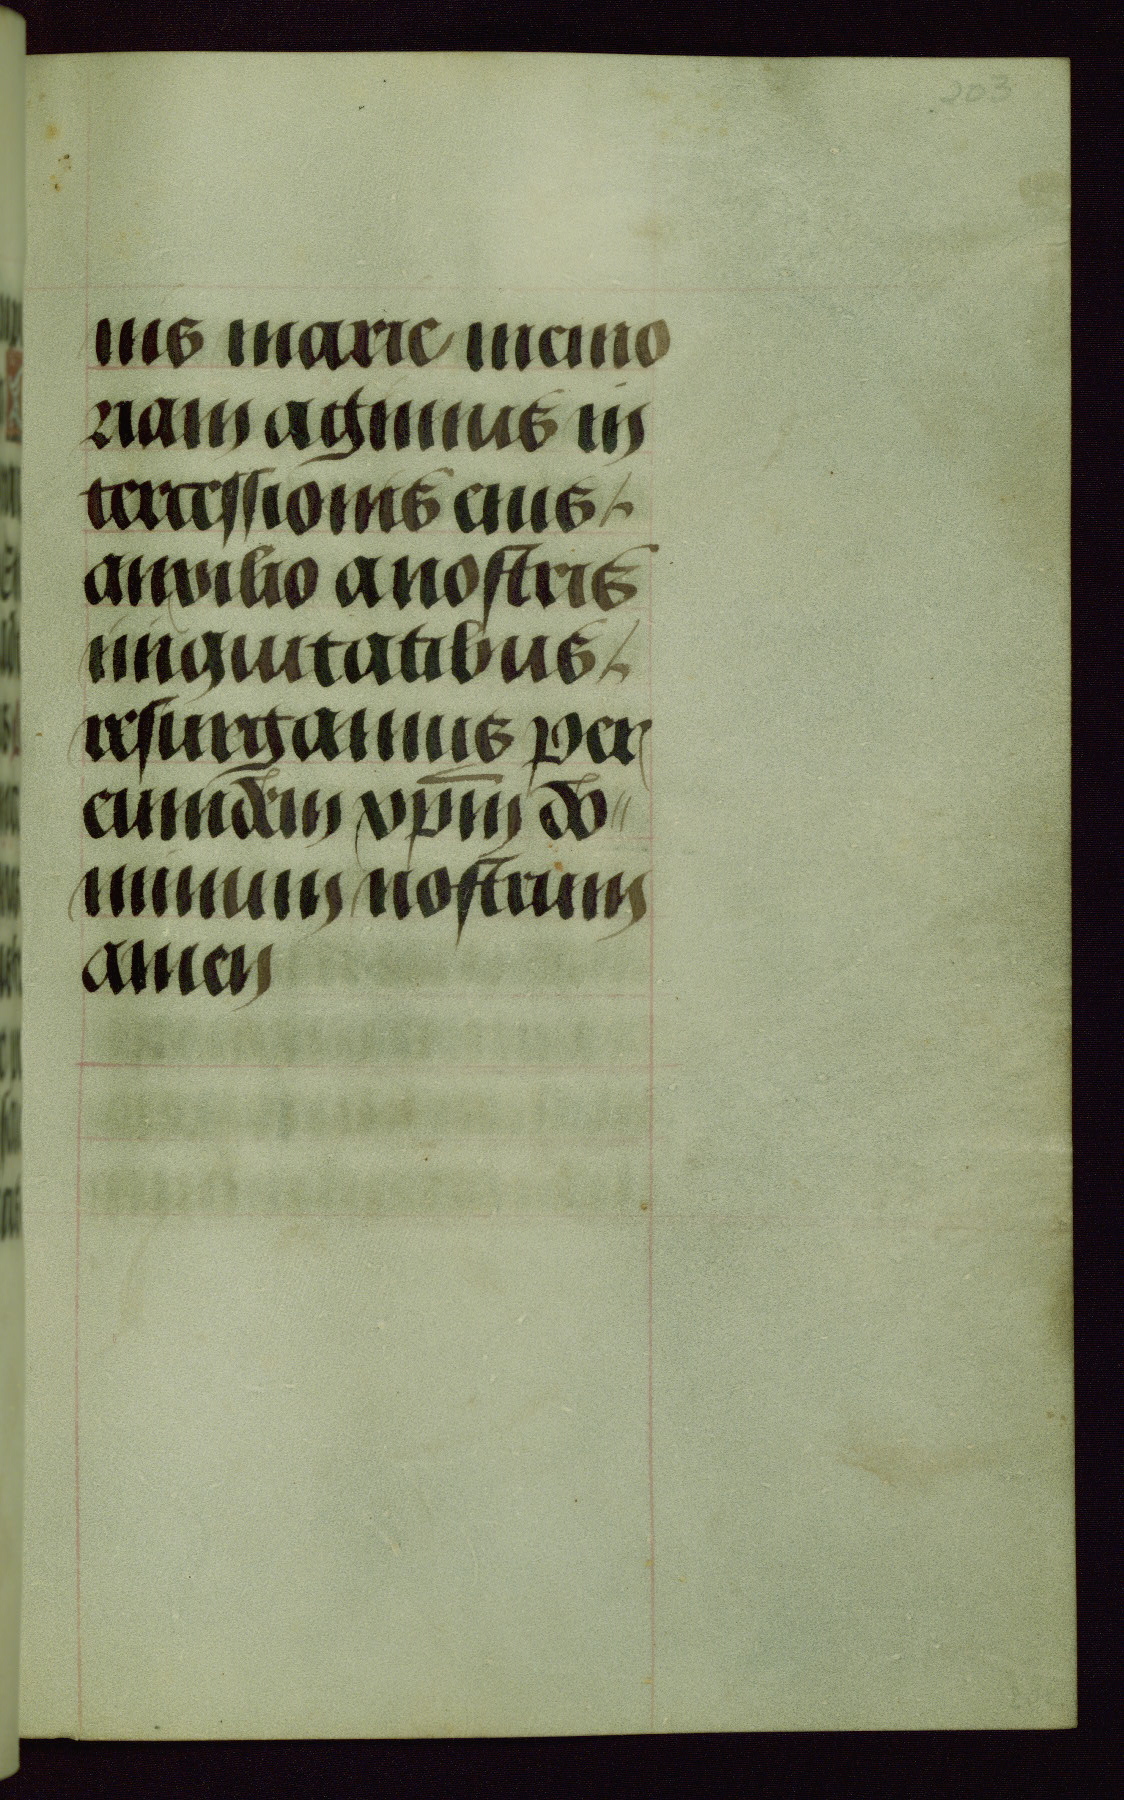 203
nis marie memo
riam agimus in
tercessionis eius /
auxilio a nostris
iniquitatibus /
resurgamus per
eumdem xp̄m do //
minum nostrum
amen